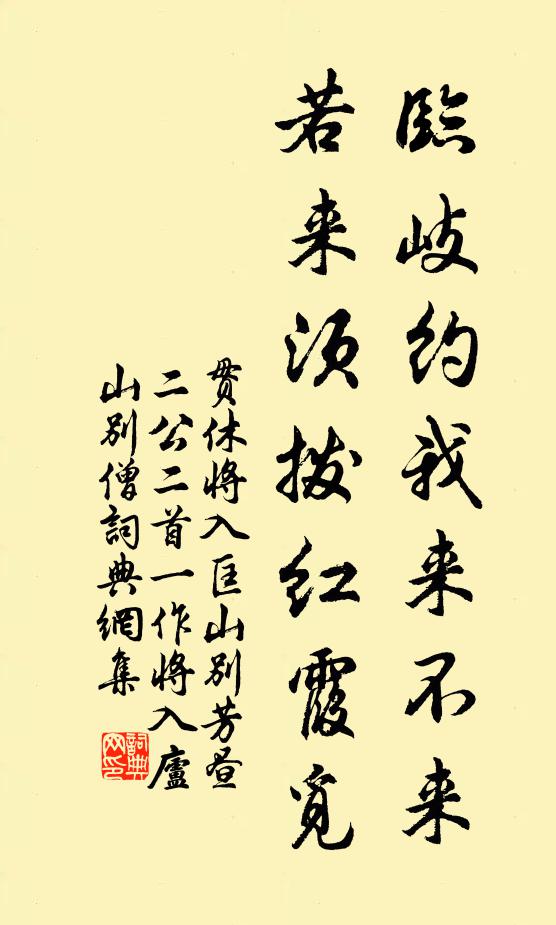 臨岐约我来不来
若来须拨红霞觅
贯休将入匡山别芳昼
二公二首一作将入廬
山别僧詞典網集
詞典
网印